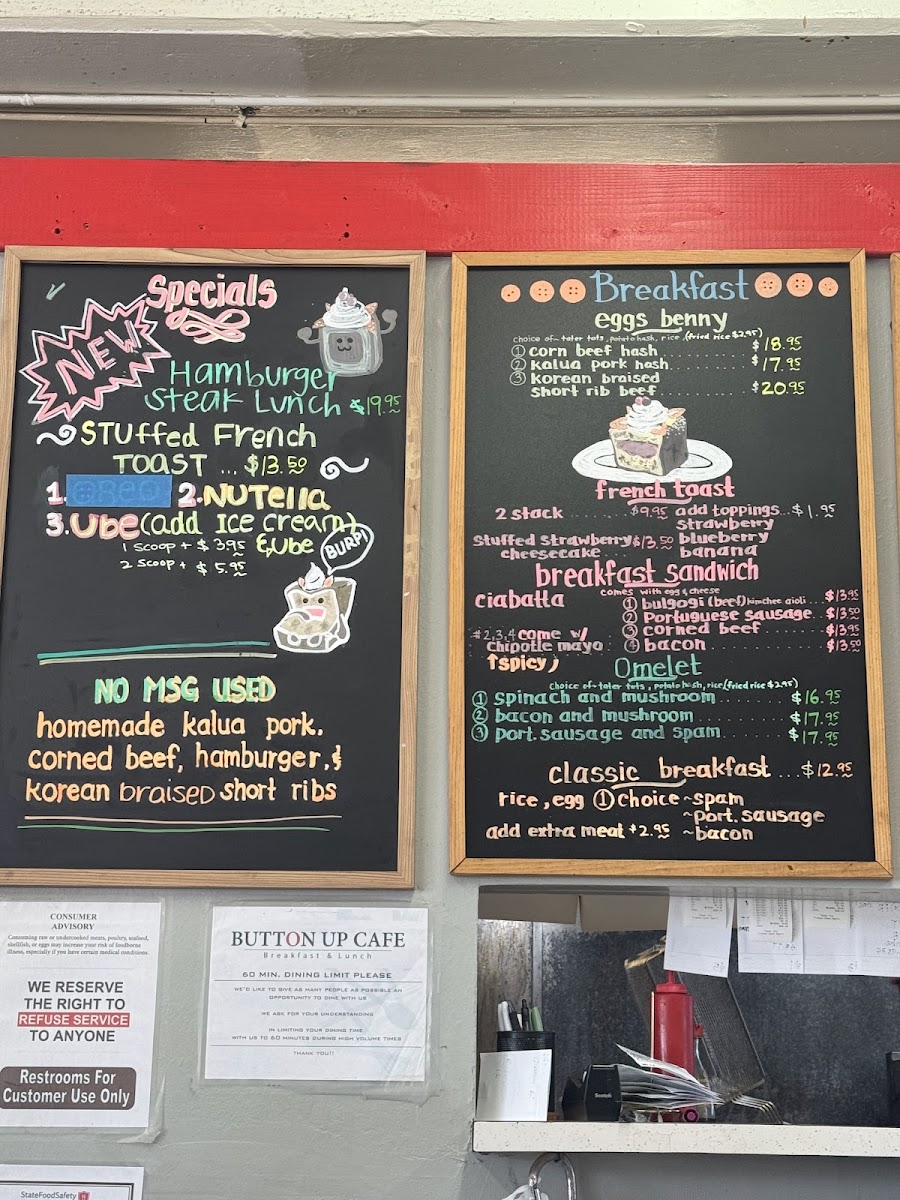 Specials
NEW
Hamburger
Steak Lunch $19.95
STuffed French
TOAST ... $13.50
1. OREO 2. NUTella
3. Ube (add Ice cream)
1 scoop + $3.95 & Ube
2 scoop + $5.95
BURP!
NO MSG USED
homemade kalua pork,
corned beef, hamburger, &
korean braised short ribs
Breakfast
eggs benny
choice of ~ tater tots, potato hash, rice, (fried rice $2.95)
① corn beef hash ........ $18.95
② kalua pork hash ........ $17.95
③ korean braised
short rib beef ........ $20.95
french toast
2 stack ........ $9.95 add toppings...$1.95
strawberry
Stuffed Strawberry $13.50 blueberry
cheesecake .... banana
breakfast sandwich
comes with egg & cheese
ciabatta ① bulgogi (beef) kimchee aioli... $13.95
② Portuguese sausage.. $13.50
#2,3,4 come w/ ③ corned beef ........ $13.95
chipotle mayo ④ bacon ........ $13.50
↑spicy)
Omelet
choice of ~ tater tots, potato hash, rice, (fried rice $2.95)
① spinach and mushroom ........ $16.95
② bacon and mushroom ........ $17.95
③ port. sausage and spam ........ $17.95
classic breakfast ...$12.95
rice, egg ① choice ~spam
~port. sausage
add extra meat $2.95 ~bacon
CONSUMER
ADVISORY
Consuming raw or undercooked meats, poultry, seafood,
shellfish, or eggs may increase your risk of foodborne
illness, especially if you have certain medical conditions.
WE RESERVE
THE RIGHT TO
REFUSE SERVICE
TO ANYONE
Restrooms For
Customer Use Only
StateFoodSafety
BUTTON UP CAFE
Breakfast & Lunch
60 MIN. DINING LIMIT PLEASE
WE'D LIKE TO GIVE AS MANY PEOPLE AS POSSIBLE AN
OPPORTUNITY TO DINE WITH US
WE ASK FOR YOUR UNDERSTANDING
IN LIMITING YOUR DINING TIME
WITH US TO 60 MINUTES DURING HIGH VOLUME TIMES
THANK YOU!!